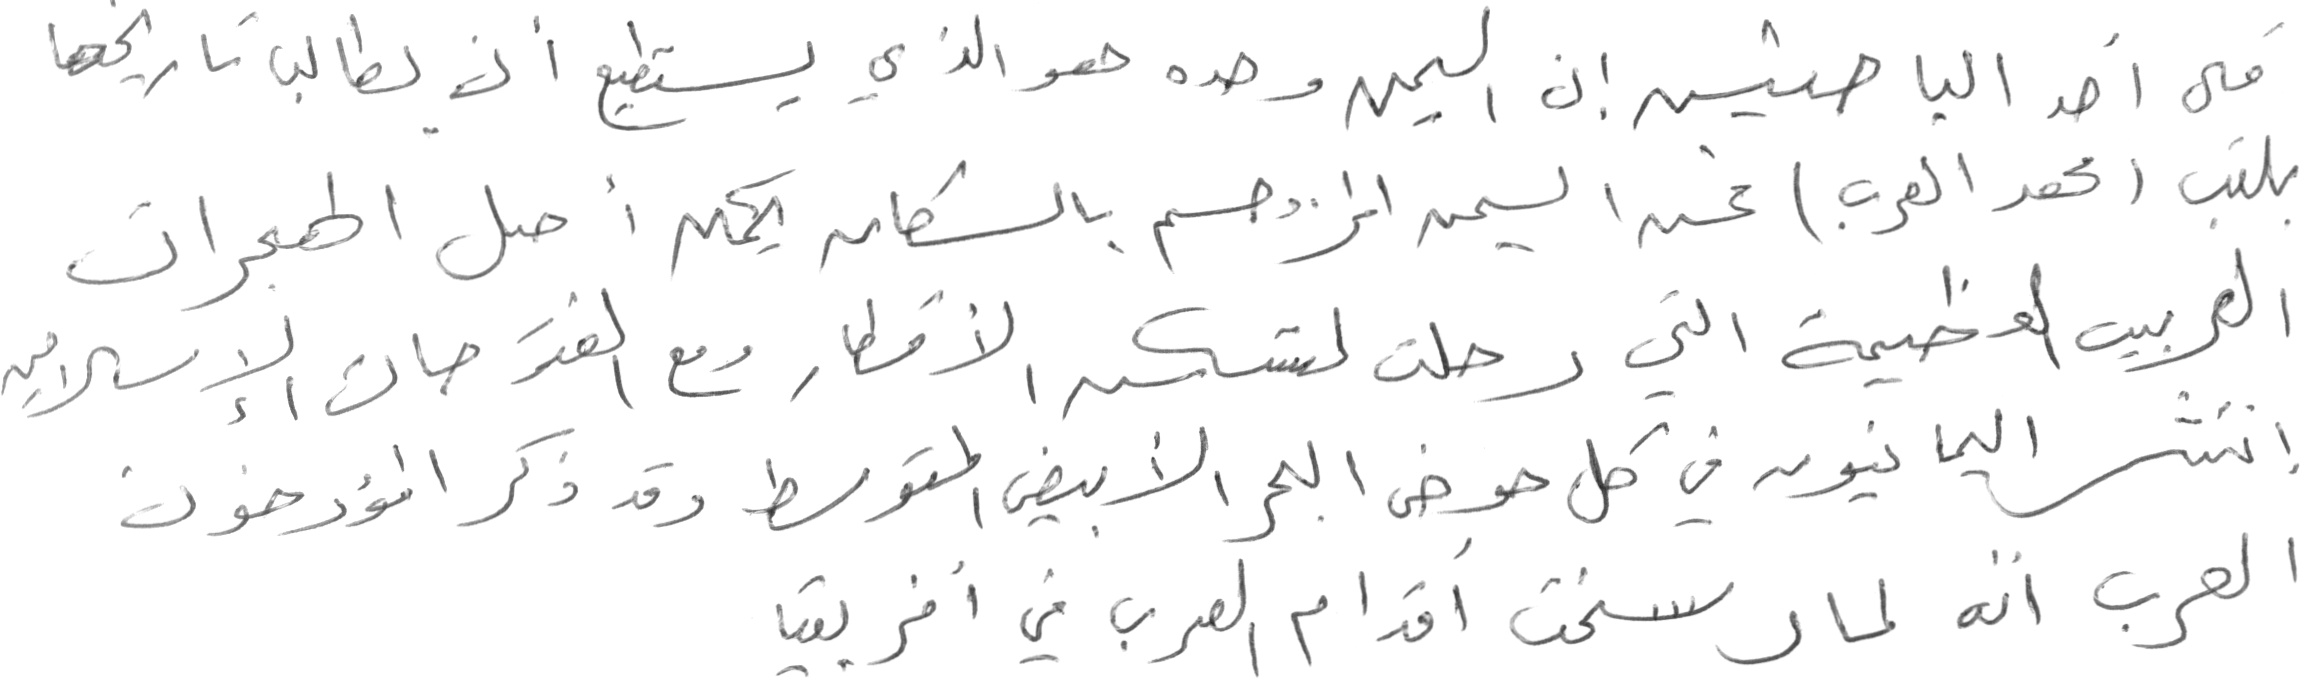 قال أحد الباحثين إن اليمن وحده هو الذي يستطيع أن يطالب تاريخها
بلقب (مهد العرب) فمن اليمن المزدحم بالسكان يمكن أصل الهجرات
العربية العظيمة التي رحلت لتسكن الأقطار ومع الفتوحات الإسلامية
إنتشر اليمانيون في كل حوض البحر الأبيض المتوسط وقد ذكر المؤرخون
العرب أنه لما رسخت أقدام العرب في أفريقيا